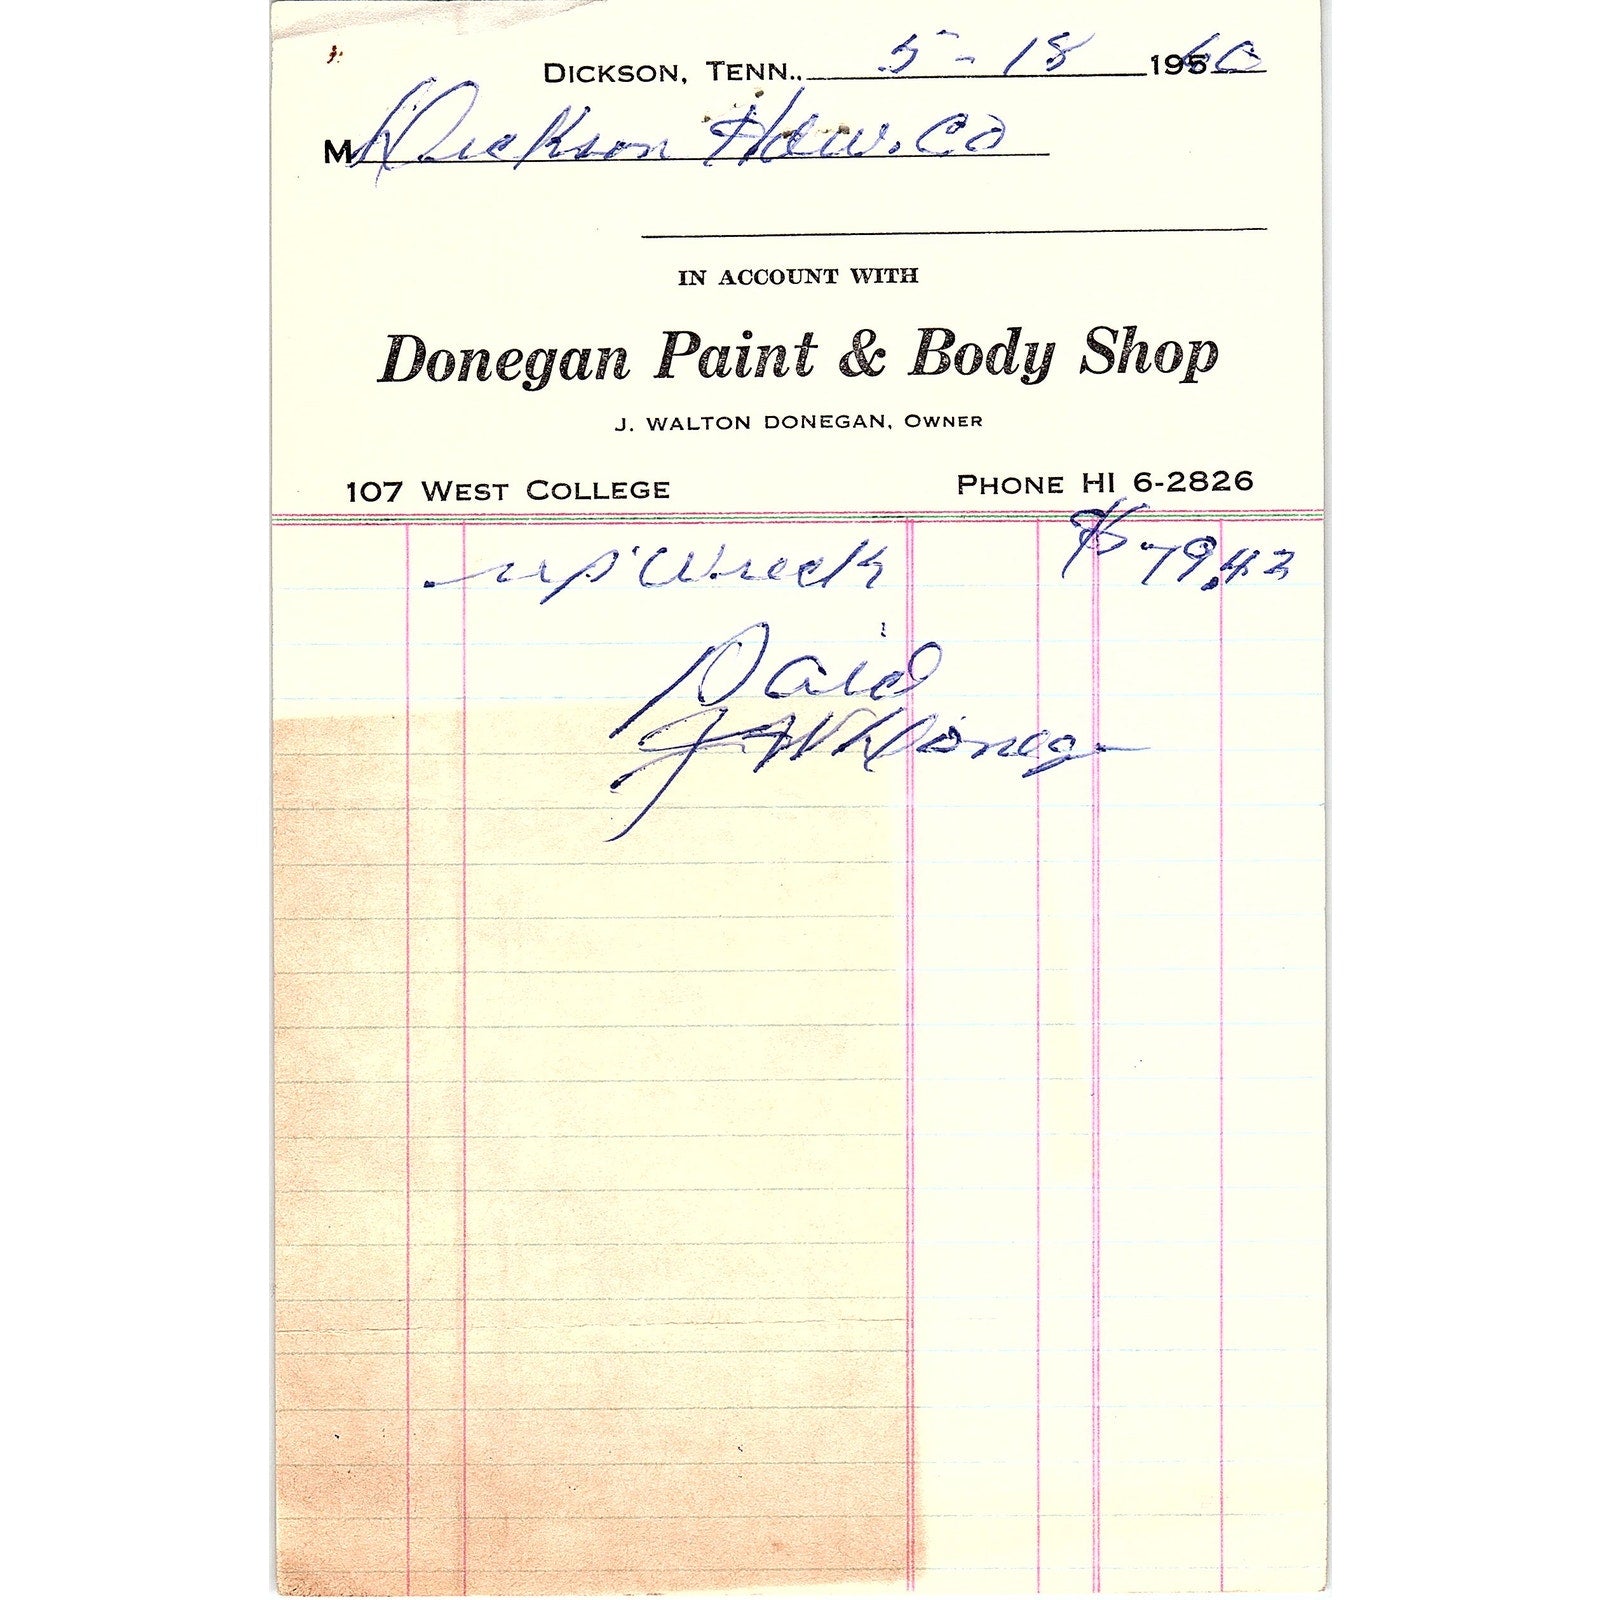 DICKSON, TENN. 5-18 1960
M Dickson Hdw. Co
IN ACCOUNT WITH
Donegan Paint & Body Shop
J. WALTON DONEGAN, OWNER
107 WEST COLLEGE PHONE HI 6-2826
Wreck $79.42
Paid
J W Donegan